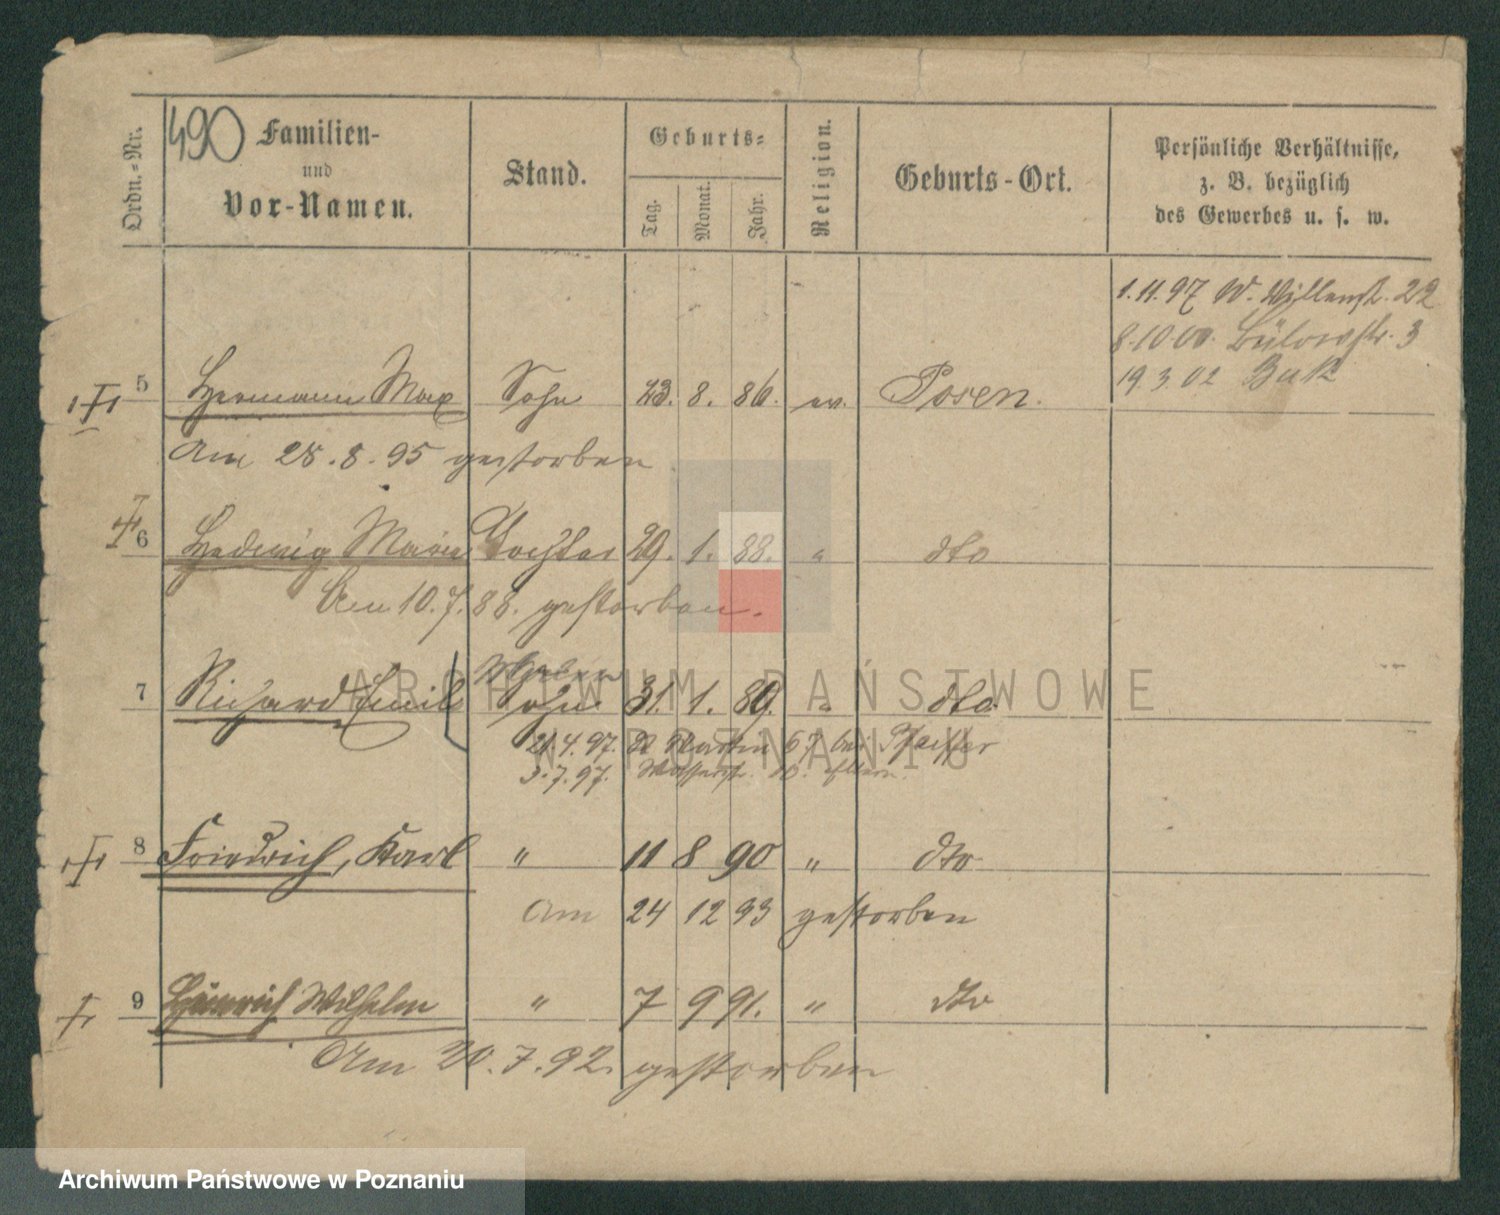 490
Ordn.-Nr.
Familien-
und
Vor-Namen.
Stand.
Geburts-
Tag.
Monat.
Jahr.
Religion.
Geburts-Ort.
Persönliche Verhältnisse,
z. B. bezüglich
des Gewerbes u. s. w.
1.11.97 W. 22
8.10.00. Bülowstr. 3
19.3.02 Buk
5 Hermann Max Sohn 23. 8. 86. ev. Posen.
Am 28.8.95 gestorben
6 Hedwig Marie Tochter 29. 1. 88. " dto
Am 10.7.88. gestorben.
7 Richard Emil Sohn 31. 1. 89. " dto
21.4.97. St Martin 67 bei Pfeiffer
3.7.97. Wasserstr. Eltern.
8 Friedrich, Karl " 11 8 90 " dto
Am 24 12 93 gestorben
9 Heinrich Wilhelm " 7 9 91. " dto
Am 20.7.92. gestorben
ARCHIWUM PAŃSTWOWE
W POZNANIU
Archiwum Państwowe w Poznaniu